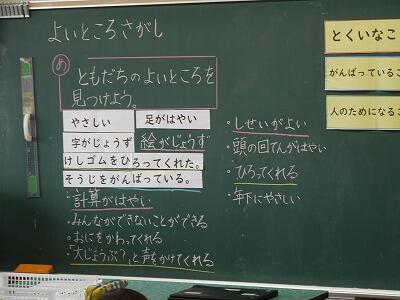 よいところさがし
め
ともだちのよいところを
見つけよう。
やさしい
足がはやい
字がじょうず
絵がじょうず
けしゴムをひろってくれた。
そうじをがんばっている。
・計算がはやい
・みんなができないことができる
・おにをかわってくれる
・「大じょうぶ?」と声をかけてくれる
・しせいがよい
・頭の回てんがはやい
・ひろってくれる
・年下にやさしい
とくいなこ
がんばっているこ
人のためになるこ